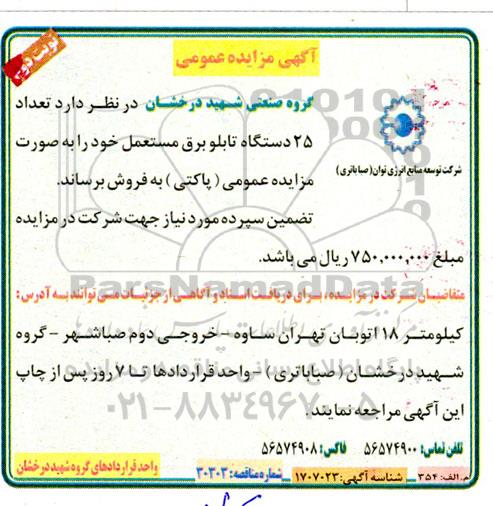 نوبت دوم
آگهی مزایده عمومی
شرکت توسعه منابع انرژی توان (صبا باتری)
گروه صنعتی شهید درخشان در نظر دارد تعداد
۲۵ دستگاه تابلو برق مستعمل خود را به صورت
مزایده عمومی ( پاکتی ) به فروش برساند.
تضمین سپرده مورد نیاز جهت شرکت در مزایده
مبلغ ۷۵۰,۰۰۰,۰۰۰ ریال می باشد.
متقاضیان شرکت در مزایده، برای دریافت اسناد و آگاهی از جزئیات می توانند به آدرس:
کیلومتر ۱۸ اتوبان تهران ساوه - خروجی دوم صباشهر - گروه
شهید درخشان ( صباباتری ) - واحد قراردادها تا ۷ روز پس از چاپ
این آگهی مراجعه نمایند.
تلفن تماس: ۵۶۵۷۴۹۰۰ فاکس: ۵۶۵۷۴۹۰۸
واحد قراردادهای گروه شهید درخشان
م.الف: ۳۵۴ شناسه آگهی: ۱۷۰۷۰۲۳ شماره مناقصه: ۳۰۳۰۳
ParsNamadData
۰۲۱-۸۸۳۴۹۶۷۰-۵